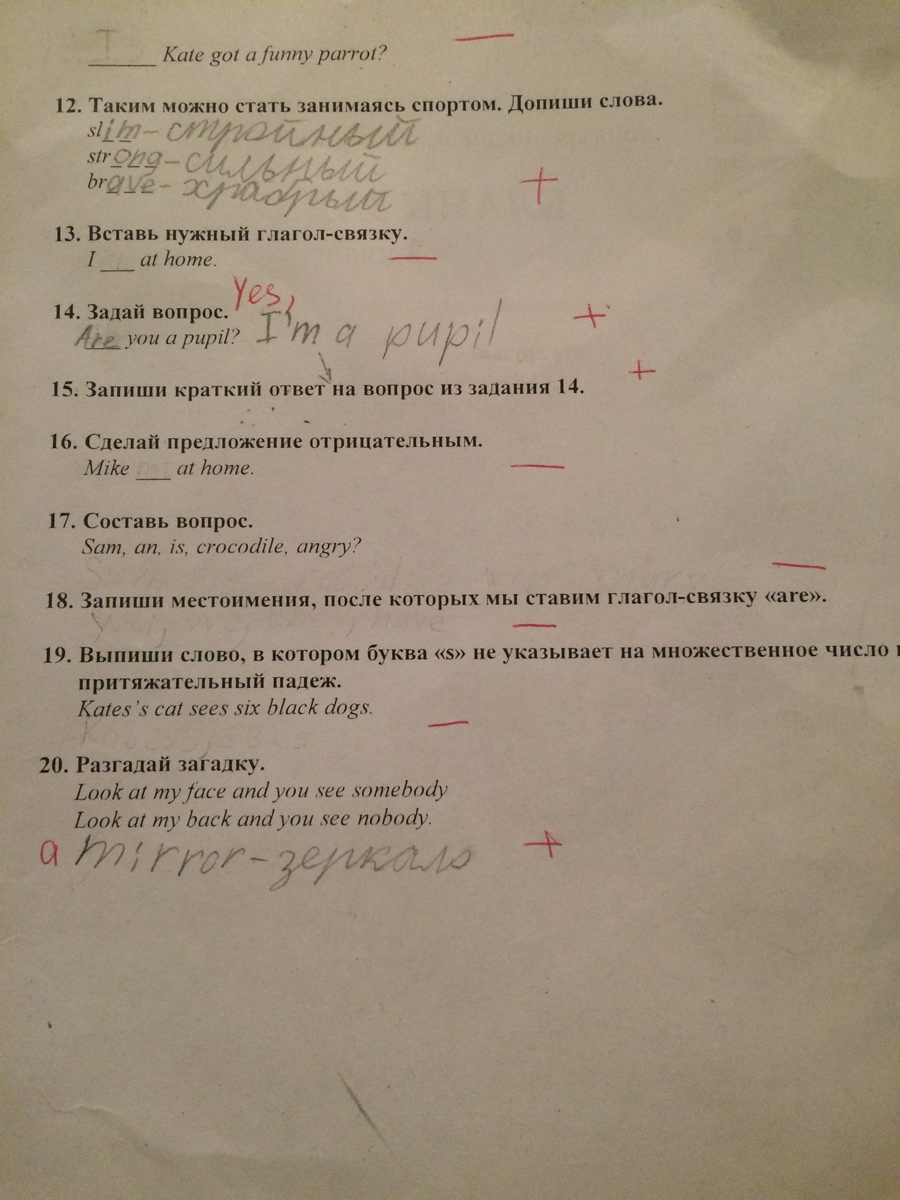 ______ Kate got a funny parrot?
12. Таким можно стать занимаясь спортом. Допиши слова.
slim - стройный
strong - сильный
brave - храбрый
+
13. Вставь нужный глагол-связку.
I ___ at home.
14. Задай вопрос. Yes,
Are you a pupil? I'm a pupil +
15. Запиши краткий ответ на вопрос из задания 14. +
16. Сделай предложение отрицательным.
Mike ___ at home.
17. Составь вопрос.
Sam, an, is, crocodile, angry?
18. Запиши местоимения, после которых мы ставим глагол-связку «are».
19. Выпиши слово, в котором буква «s» не указывает на множественное число
притяжательный падеж.
Kates's cat sees six black dogs.
20. Разгадай загадку.
Look at my face and you see somebody
Look at my back and you see nobody.
a mirror - зеркало +